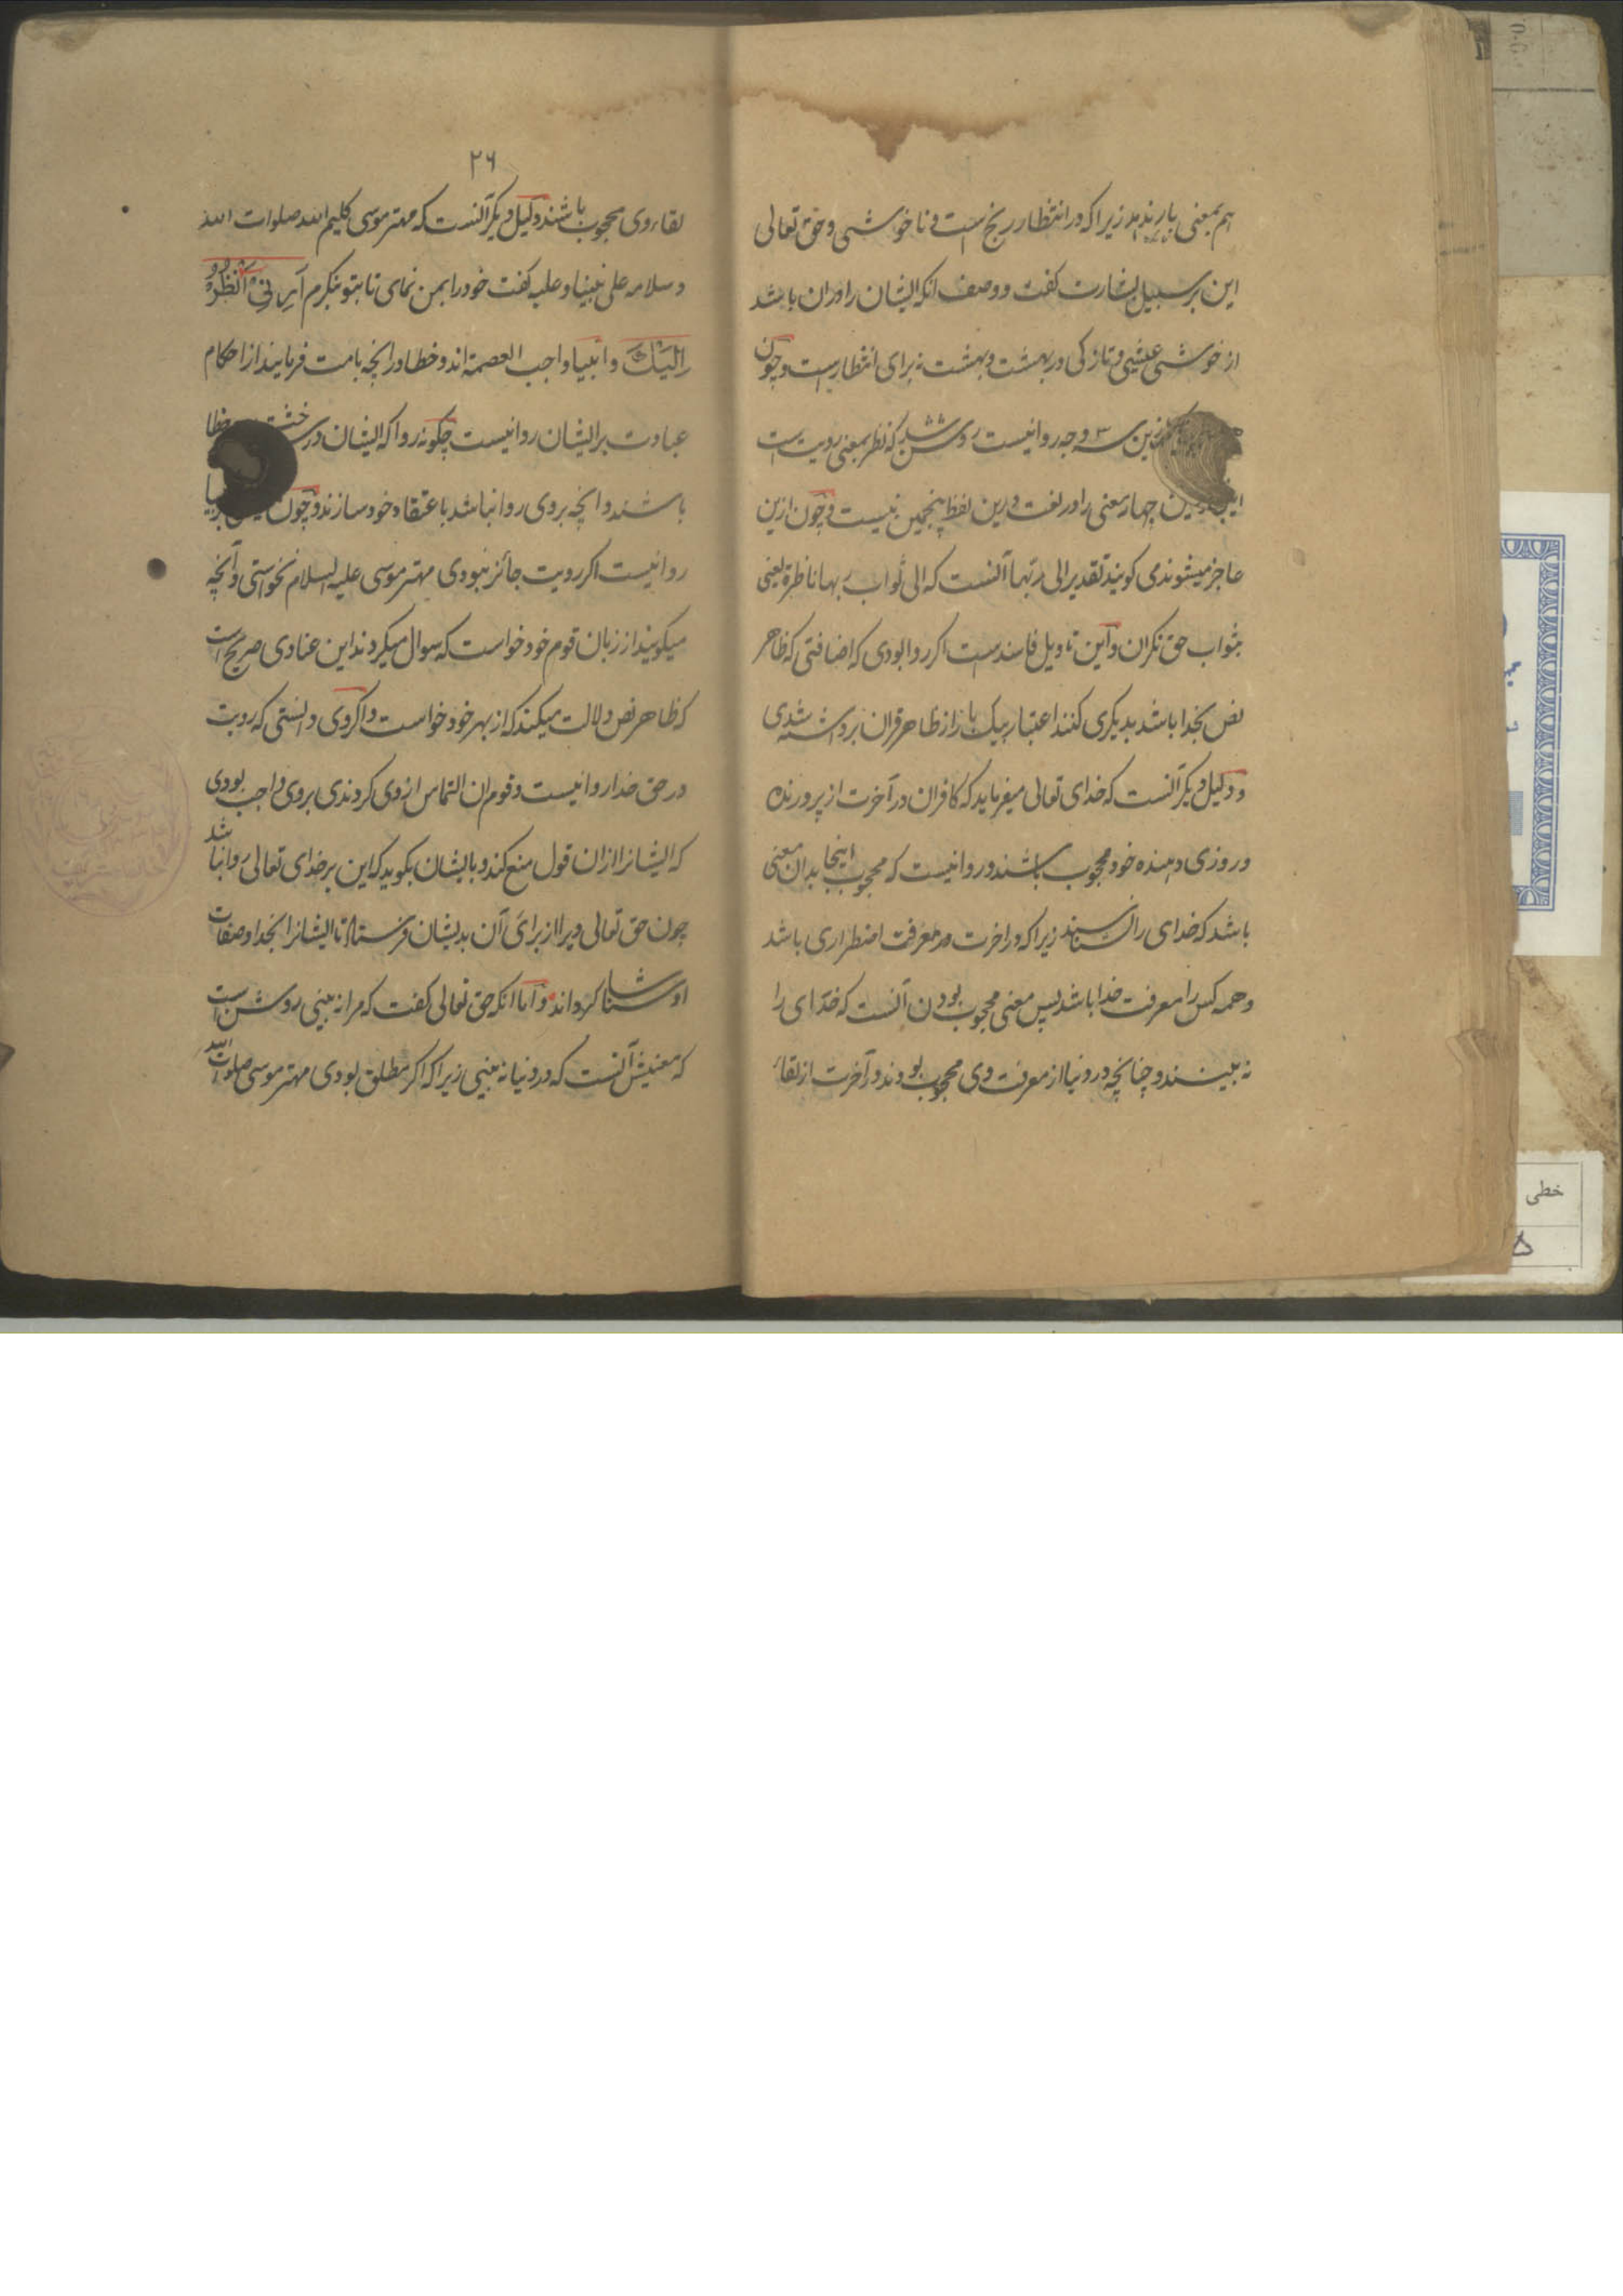 هم بمعنی باربندد زیرا که در انتظار رنج است و ناخوشی و حق تعالی
این بر سبیل بشارت گفت و وصف انکه ایشان را دران باشد
از خوشی عیشی و تازگی در بهشت و بهشت نه برای انتظارست و چون
ازین سه وجه روا نیست روشن شد که نظر بمعنی رویت است
این چهار معنی را در لغت درین لفظ پنجمین نیست و چون ازین
عاجز میشوند می کویند تقدیر الی ربها آنست که الی ثواب ربها ناظرة یعنی
بثواب حق نکران و این تاویل فاسدست اکر روا بودی که اضافتی که ظاهر
نص بخدا باشد بدیکری کنند اعتبار بیک بار از ظاهر قران برداشته شدی
و دلیل دیکر آنست که خدای تعالی میفرماید که کافران در آخرت از پرورنده
و روزی دهنده خود محجوب باشند و روا نیست که محجوب اینجا بدان معنی
باشد که خدای را نشناسند زیرا که در اخرت در معرفت اضطراری باشد
و همه کس را معرفت خدا باشد پس معنی محجوب بودن آنست که خدای را
نه بینند و چنانچه در دنیا از معرفت وی محجوب بودند در آخرت از لقاء
۲۶
لقاء وی محجوب باشند و دلیل دیکر آنست که مهتر موسی کلیم الله صلوات الله
و سلامه علی نبینا و علیه کفت خود را بمن نمای تا بتو بنکرم اَرِنِی اَنْظُرْ
اِلَیْکَ و انبیا واجب العصمة اند و خطا در انچه بامت فرمایند از احکام
عبادت بر ایشان روا نیست چکونه روا که ایشان در خطا
باشند و انچه بر وی روا نباشد باعتقاد خود سازند و چون
روا نیست اکر رویت جائز نبودی مهتر موسی علیه السلام نخواستی و آنچه
میکویند از زبان قوم خود خواست که سوال میکردند این عنادی صریح است
که ظاهر نص دلالت میکند که از بهر خود خواست و اکر وی دانستی که رویت
در حق خدا روا نیست و قوم ان التماس از وی کردندی بر وی واجب بودی
که ایشانرا ازان قول منع کند و بایشان بکوید که این بر خدای تعالی روا نباشد
چون حق تعالی ویرا از برای آن بدیشان فرستاد تا ایشانرا بخدا و صفات
او شناسا کرداند و اما انکه حق تعالی کفت که مرا نه بینی روشن است
که معنیش آنست که در دنیا نه بینی زیرا که اکر مطلق بودی مهتر موسی صلوات الله
خطی
۵